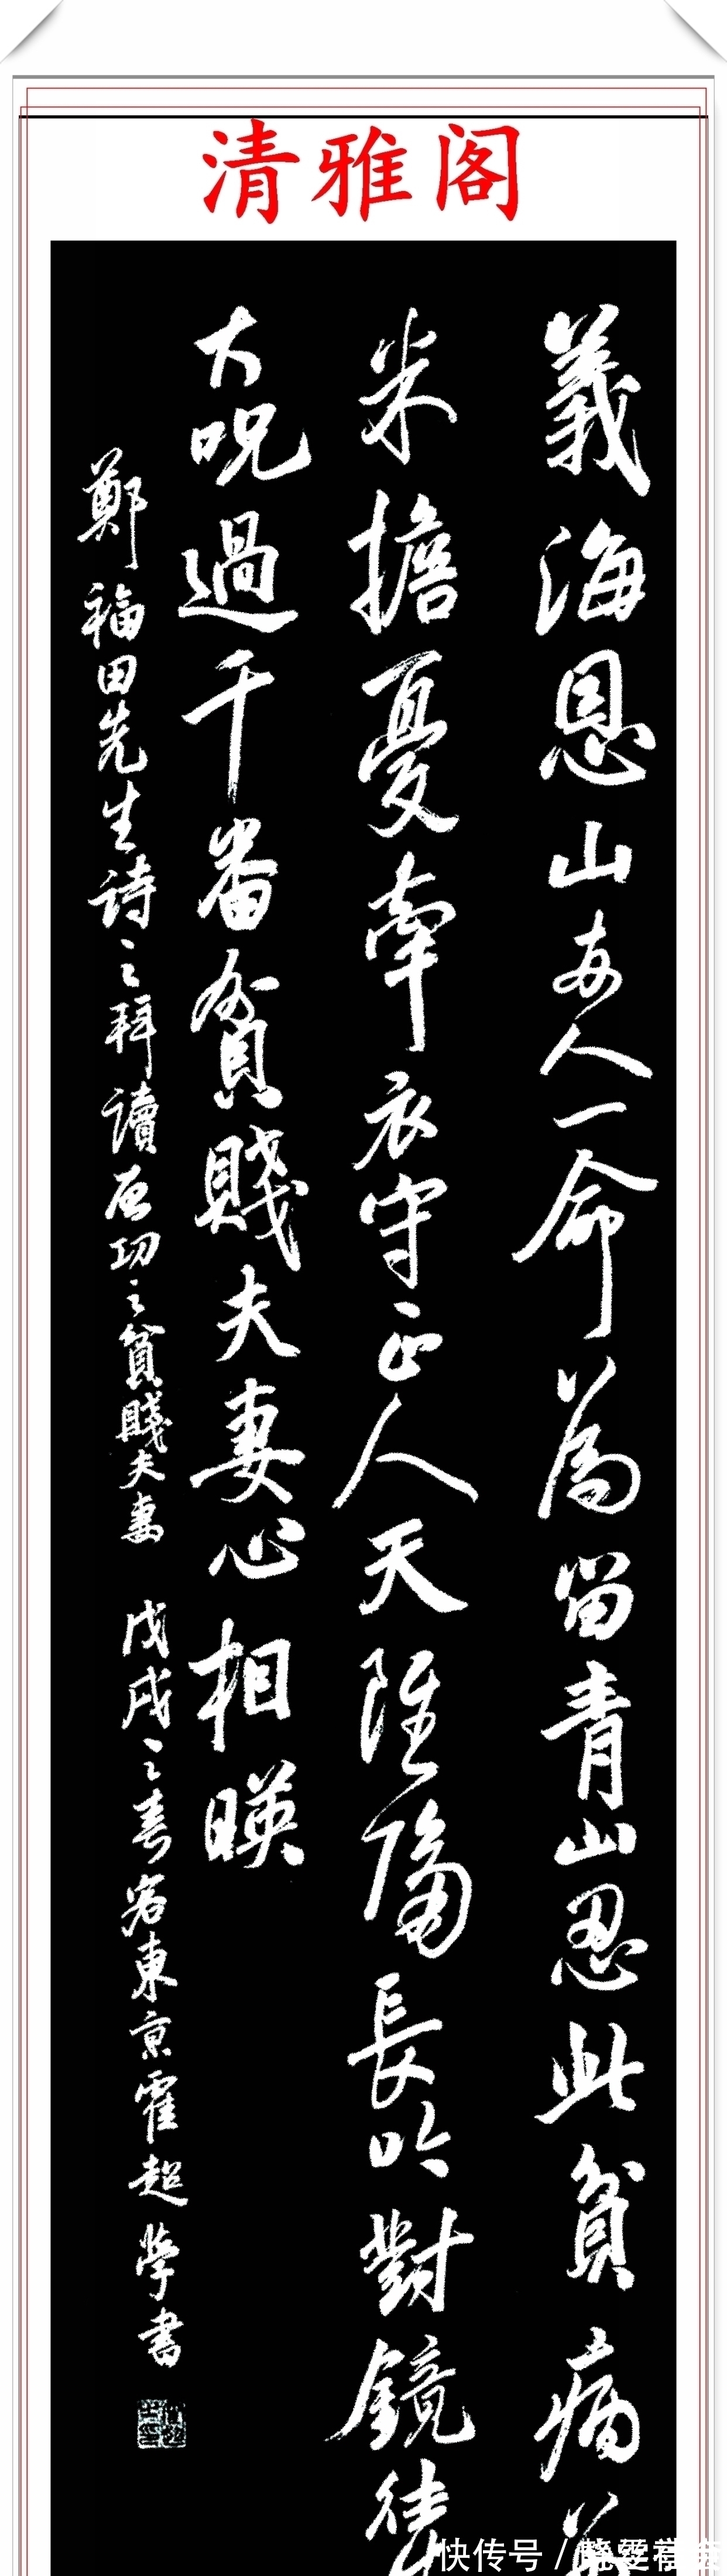 清雅阁
義海恩山人一命為留青山忍此貧病
米擔憂牽衣守正人天隔長吟對鏡
大呪過千番貧賤夫妻心相暎
鄭福田先生詩之拜讀啟功之貧賤夫妻 戊戌之春客東京霍超學書
快传号 /